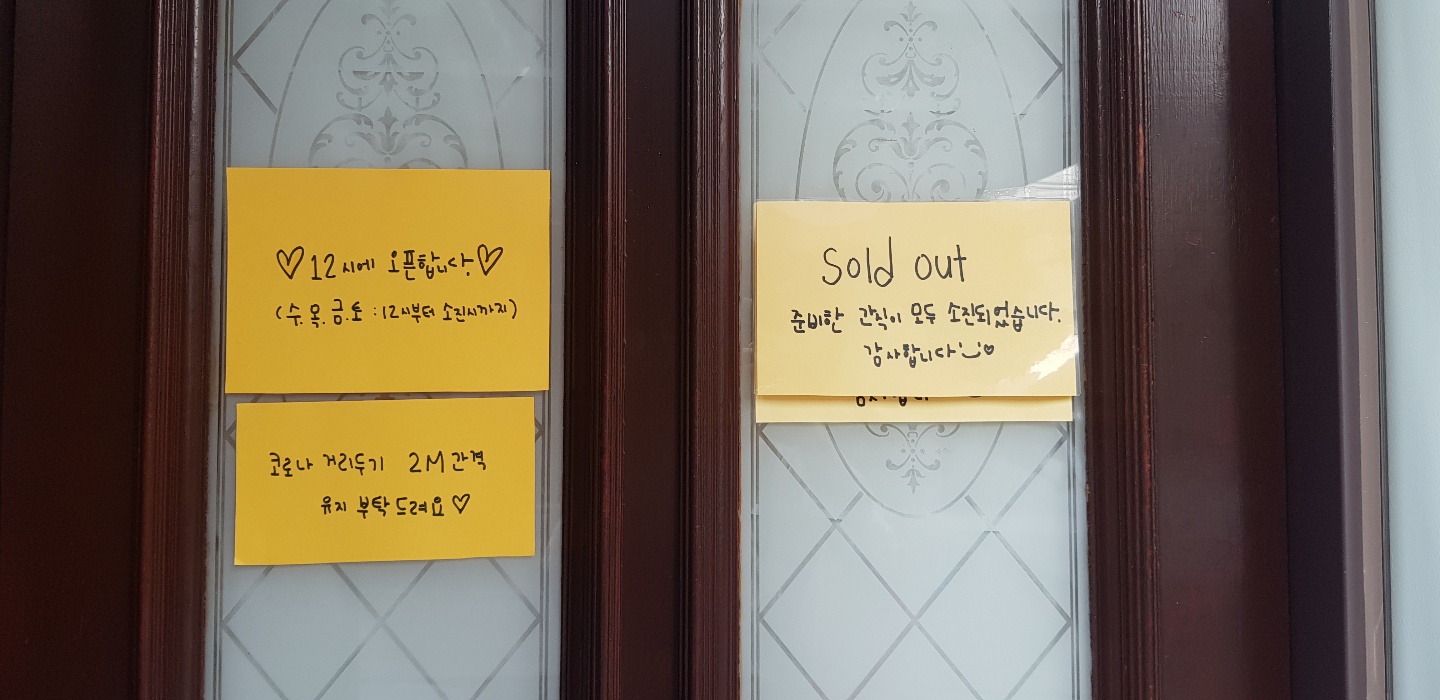 ♡12시에 오픈합니다.♡
(수.목.금.토 : 12시부터 소진시까지)
코로나 거리두기 2M 간격
유지 부탁 드려요♡
Sold out
준비한 간식이 모두 소진되었습니다.
감사합니다:)♡